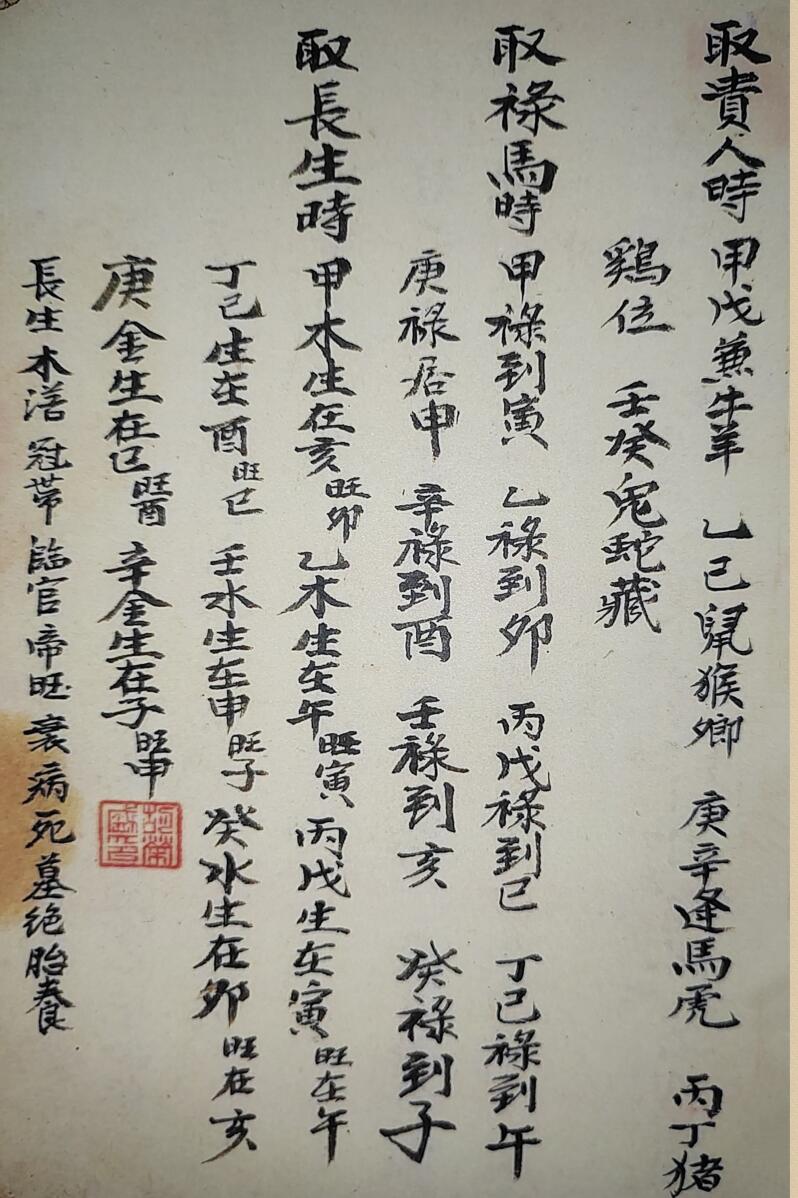 取貴人時 甲戊兼牛羊 乙己鼠猴鄉 庚辛逢馬虎 丙丁猪
鷄位 壬癸兔蛇藏
取禄馬時 甲禄到寅 乙禄到卯 丙戊禄到巳 丁己禄到午
庚禄居申 辛禄到酉 壬禄到亥 癸禄到子
取長生時 甲木生在亥旺卯 乙木生在午旺寅 丙戊生在寅旺在午
丁己生在酉旺巳 壬水生在申旺子 癸水生在卯旺在亥
庚金生在巳旺酉 辛金生在子旺申
長生 木浴 冠带 臨官 帝旺 衰 病 死 墓 绝 胎 養